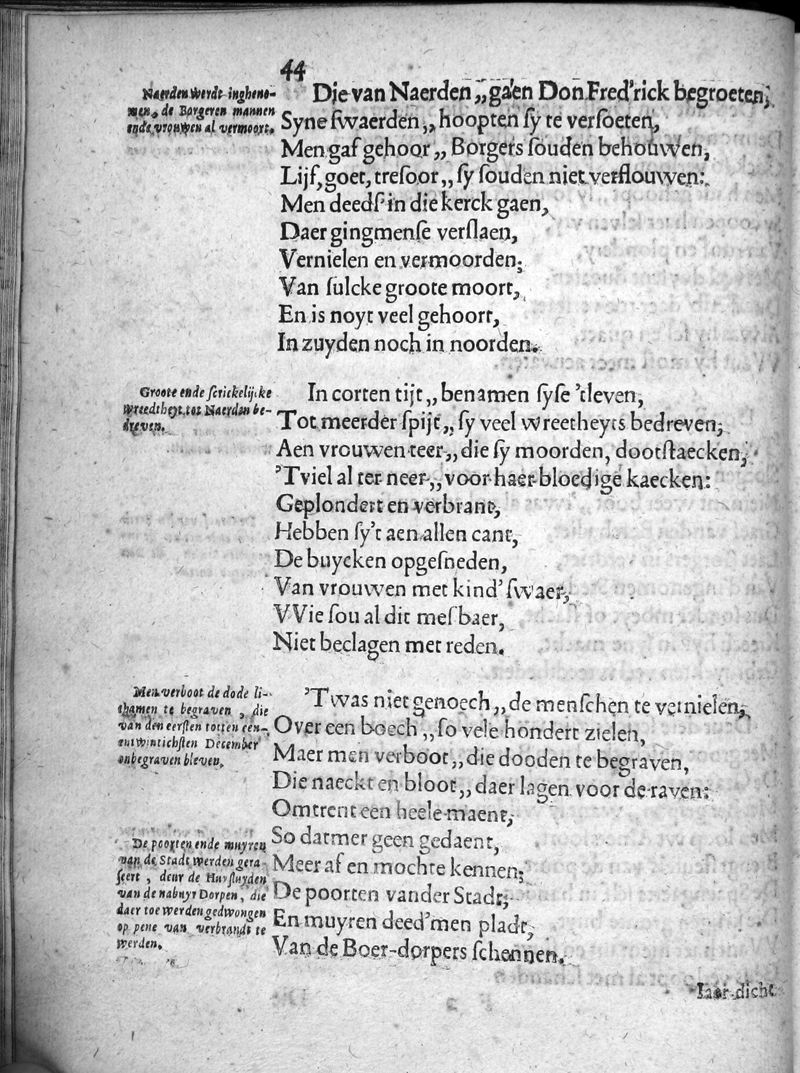 44
Naerden werdt inghenomen,
men, de Borgeren mannen
ende vrouwen al vermoort.
Die van Naerden ,, gaen Don Fred'rick begroeten,
Syne swaerden ,, hoopten sy te versoeten,
Men gaf gehoor ,, Borgers souden behouwen,
Lijf, goet, tresoor ,, sy souden niet verflouwen:
Men deeds' in die kerck gaen,
Daer gingmense verslaen,
Vernielen en vermoorden;
Van sulcke groote moort,
En is noyt veel gehoort,
In zuyden noch in noorden.
Groote ende scrickelijcke
wreedtheyt, tot Naerden be-
dreven.
In corten tijt ,, benamen syse 'tleven,
Tot meerder spijt ,, sy veel wreetheyts bedreven,
Aen vrouwen teer ,, die sy moorden, dootstaecken,
'Tviel al ter neer ,, voor haer bloedige kaecken:
Geplondert en verbrant,
Hebben sy't aen allen cant,
De buycken opgesneden,
Van vrouwen met kind' swaer,
VVie sou al dit mesbaer,
Niet beclagen met reden.
Men verboot de dode li-
chamen te begraven, die
van den eersten totten een-
entwintichsten December
onbegraven bleven.
'Twas niet genoech ,, de menschen te vernielen,
Over een boech ,, so vele hondert zielen,
Maer men verboot ,, die dooden te begraven,
Die naeckt en bloot ,, daer lagen voor de raven:
Omtrent een heele maent,
So datmer geen gedaent,
Meer af en mochte kennen;
De poorten vander Stadt;
En muyren deed'men pladt,
Van de Boer-dorpers schennen.
De poorten ende muyren
van de Stadt werden gera-
seert, deur de Huysluyden
van de nabuyr Dorpen, die
daer toe werden gedwongen
op pene van verbrandt te
werden.
Iaer-dicht